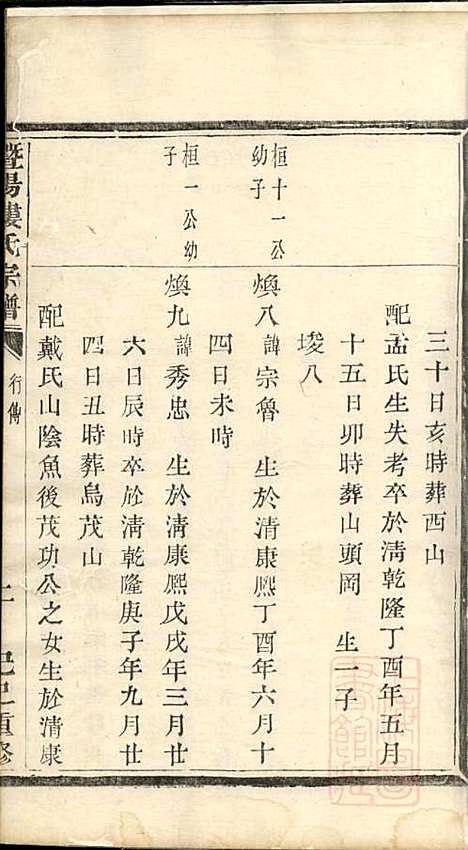 三十日亥時葬西山
配孟氏生失考卒於淸乾隆丁酉年五月
十五日卯時葬山頭岡 生一子
埈八
桓十一公幼子
煥八 諱宗魯 生於清康熙丁酉年六月十
四日未時
桓一公幼子
煥九 諱秀忠 生於淸康熙戊戌年三月廿
六日辰時卒於淸乾隆庚子年九月廿
四日丑時葬烏茂山
配戴氏山陰魚後茂功公之女生於清康
暨陽婁氏宗譜 行傳 己巳重修